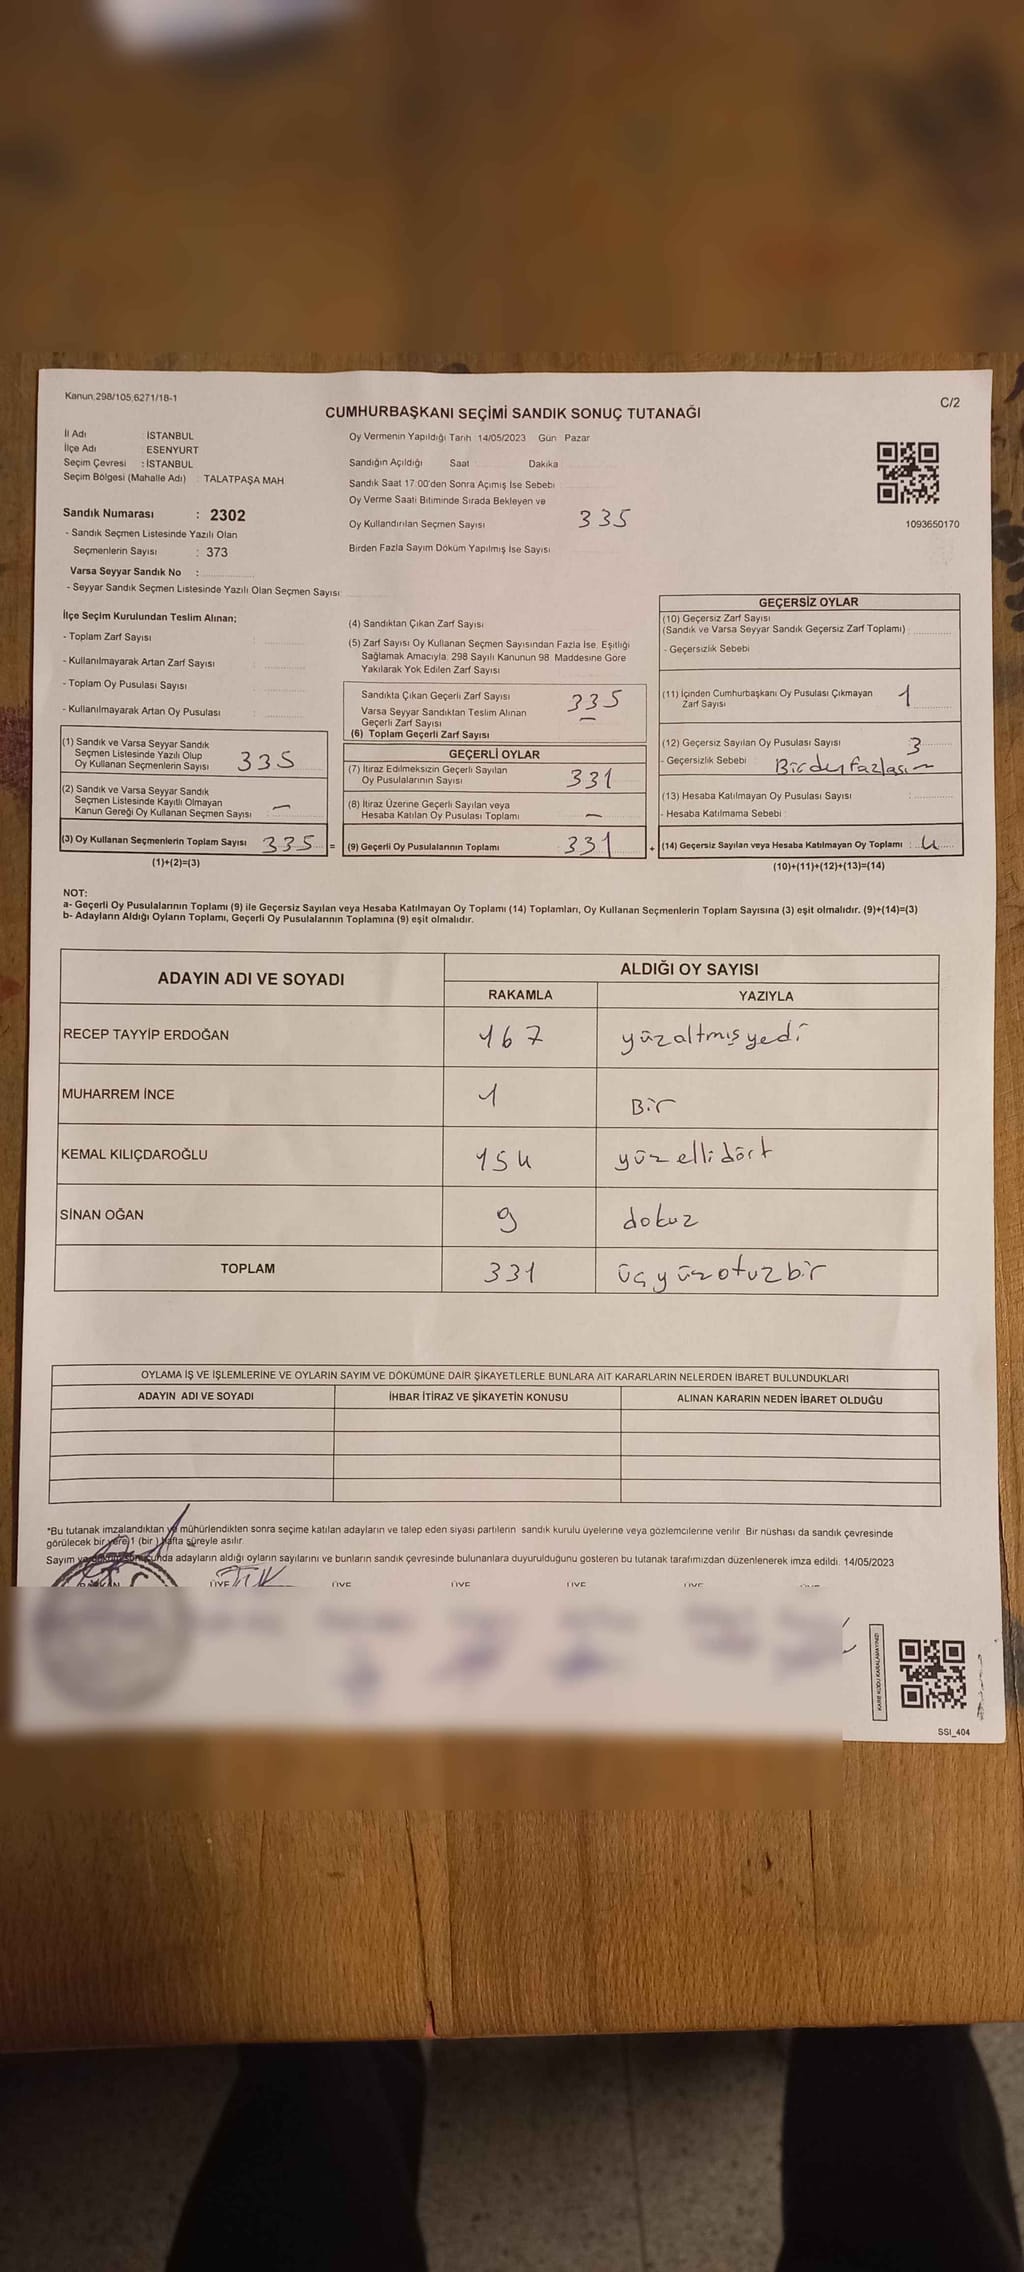 Kanun 298/105,6271/18-1
C/2
CUMHURBAŞKANI SEÇİMİ SANDIK SONUÇ TUTANAĞI
İl Adı : İSTANBUL
İlçe Adı : ESENYURT
Seçim Çevresi : İSTANBUL
Seçim Bölgesi (Mahalle Adı) : TALATPAŞA MAH
Sandık Numarası : 2302
- Sandık Seçmen Listesinde Yazılı Olan
Seçmenlerin Sayısı : 373
Varsa Seyyar Sandık No :
- Seyyar Sandık Seçmen Listesinde Yazılı Olan Seçmen Sayısı:
Oy Vermenin Yapıldığı Tarih 14/05/2023 Gün Pazar
Sandığın Açıldığı Saat Dakika
Sandık Saat 17:00'den Sonra Açılmış İse Sebebi
Oy Verme Saati Bitiminde Sırada Bekleyen ve
Oy Kullandırılan Seçmen Sayısı 335
Birden Fazla Sayım Döküm Yapılmış İse Sayısı
1093650170
İlçe Seçim Kurulundan Teslim Alınan;
- Toplam Zarf Sayısı :
- Kullanılmayarak Artan Zarf Sayısı :
- Toplam Oy Pusulası Sayısı :
- Kullanılmayarak Artan Oy Pusulası :
(1) Sandık ve Varsa Seyyar Sandık
Seçmen Listesinde Yazılı Olup
Oy Kullanan Seçmenlerin Sayısı 335
(2) Sandık ve Varsa Seyyar Sandık
Seçmen Listesinde Kayıtlı Olmayan
Kanun Gereği Oy Kullanan Seçmen Sayısı —
(3) Oy Kullanan Seçmenlerin Toplam Sayısı 335 =
(1)+(2)=(3)
(4) Sandıktan Çıkan Zarf Sayısı
(5) Zarf Sayısı Oy Kullanan Seçmen Sayısından Fazla İse, Eşitliği
Sağlamak Amacıyla, 298 Sayılı Kanunun 98. Maddesine Göre
Yakılarak Yok Edilen Zarf Sayısı
Sandıkta Çıkan Geçerli Zarf Sayısı 335
Varsa Seyyar Sandıktan Teslim Alınan
Geçerli Zarf Sayısı —
(6) Toplam Geçerli Zarf Sayısı
GEÇERLİ OYLAR
(7) İtiraz Edilmeksizin Geçerli Sayılan
Oy Pusulalarının Sayısı 331
(8) İtiraz Üzerine Geçerli Sayılan veya
Hesaba Katılan Oy Pusulası Toplamı —
(9) Geçerli Oy Pusulalarının Toplamı : 331 +
GEÇERSİZ OYLAR
(10) Geçersiz Zarf Sayısı
(Sandık ve Varsa Seyyar Sandık Geçersiz Zarf Toplamı) :
- Geçersizlik Sebebi
(11) İçinden Cumhurbaşkanı Oy Pusulası Çıkmayan
Zarf Sayısı 1
(12) Geçersiz Sayılan Oy Pusulası Sayısı 3
- Geçersizlik Sebebi
(13) Hesaba Katılmayan Oy Pusulası Sayısı :
- Hesaba Katılmama Sebebi :
(14) Geçersiz Sayılan veya Hesaba Katılmayan Oy Toplamı : 4
(10)+(11)+(12)+(13)=(14)
NOT:
a- Geçerli Oy Pusulalarının Toplamı (9) ile Geçersiz Sayılan veya Hesaba Katılmayan Oy Toplamı (14) Toplamları, Oy Kullanan Seçmenlerin Toplam Sayısına (3) eşit olmalıdır. (9)+(14)=(3)
b- Adayların Aldığı Oyların Toplamı, Geçerli Oy Pusulalarının Toplamına (9) eşit olmalıdır.
ADAYIN ADI VE SOYADI
ALDIĞI OY SAYISI
RAKAMLA YAZIYLA
RECEP TAYYİP ERDOĞAN 167 yüzaltmışyedi
MUHARREM İNCE 1 Bir
KEMAL KILIÇDAROĞLU 154 yüzellidört
SİNAN OĞAN 9 dokuz
TOPLAM 331 üçyüzotuzbir
OYLAMA İŞ VE İŞLEMLERİNE VE OYLARIN SAYIM VE DÖKÜMÜNE DAİR ŞİKAYETLERLE BUNLARA AİT KARARLARIN NELERDEN İBARET BULUNDUKLARI
ADAYIN ADI VE SOYADI İHBAR İTİRAZ VE ŞİKAYETİN KONUSU ALINAN KARARIN NEDEN İBARET OLDUĞU
*Bu tutanak imzalandıktan ve mühürlendikten sonra seçime katılan adayların ve talep eden siyasi partilerin sandık kurulu üyelerine veya gözlemcilerine verilir. Bir nüshası da sandık çevresinde
görülecek bir yere 1 (bir) hafta süreyle asılır.
Sayım ve döküm sonucunda adayların aldığı oyların sayılarını ve bunların sandık çevresinde bulunanlara duyurulduğunu gösteren bu tutanak tarafımızdan düzenlenerek imza edildi. 14/05/2023
BAŞKAN ÜYE ÜYE ÜYE ÜYE ÜYE ÜYE
KARE KODU KARALAMAYINIZ!
SSI_404